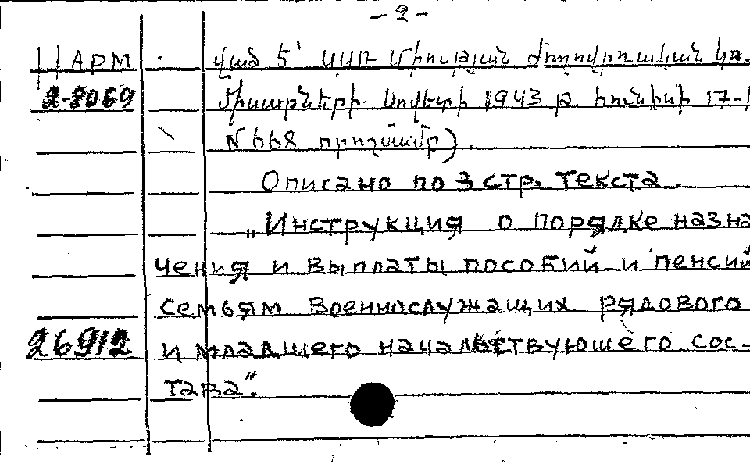 -2-
АРМ վամ Է' ՍՍՌ Միության ժողովրդական կո-
2-8069 միսարների սովետի 1943 թ. հունիսի 17-ի
N 668 որոշմամբ).
Описано по 3 стр. текста.
"Инструкция о порядке назна
чения и выплаты пособий и пенсий
семьям военнослужащих рядового
26912 и младшего начальствующего сос-
тава".